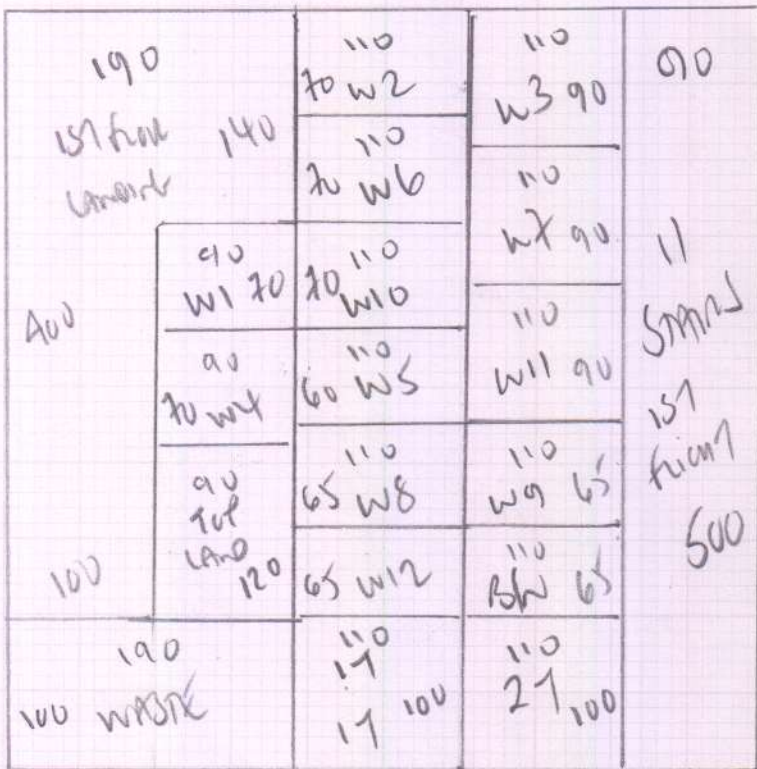 190
1ST FLOOR 140
LANDING
400
100
90
W1 70
90
70 W4
90
TOP
LAND
120
190
100 WASTE
110
70 W2
110
70 W6
110
70 W10
110
60 W5
110
65 W8
65 W12
110
1T
1T 100
110
W3 90
110
W7 90
110
W11 90
110
W9 65
110
BW 65
110
2T 100
90
11
STAIRS
1ST
FLIGHT
500